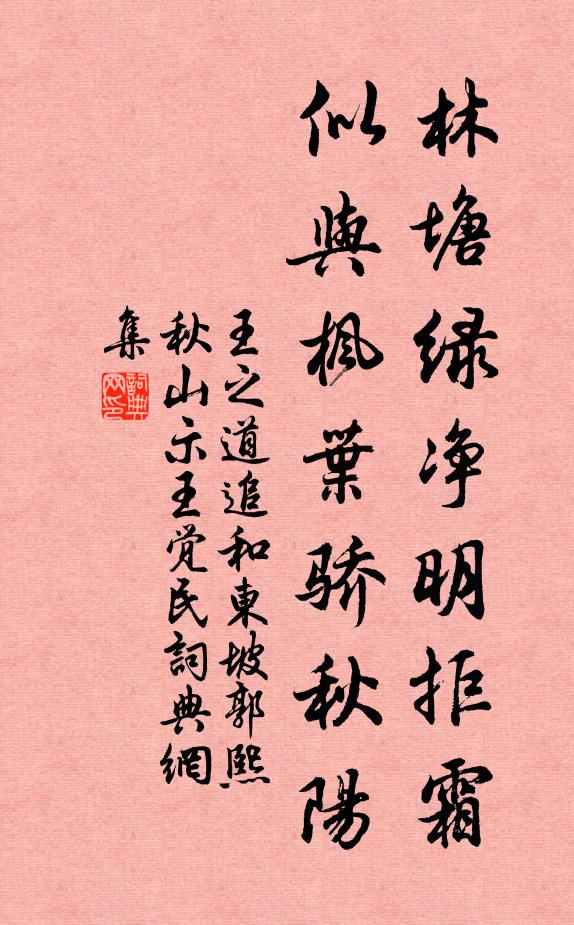 林塘绿净明拒霜
似與枫葉骄秋陽
王之道追和東坡郭熙
秋山示王觉民詞典網
集
詞典网印